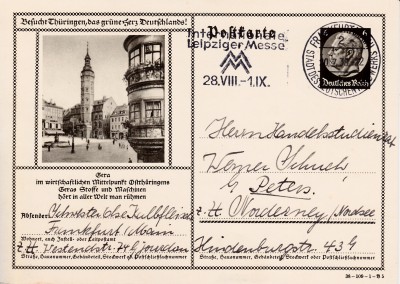 Besucht Thüringen, das grüne Herz Deutschlands!
Postkarte
Internationale
Leipziger Messe
MM
28.VIII.-1.IX.
FRANKFURT
STADT DES DEUTSCHEN
6
Deutsches Reich
Gera
im wirtschaftlichen Mittelpunkt Ostthüringens
Geras Stoffe und Maschinen
hört in aller Welt man rühmen
Herrn Handelsstudienrat
Werner
Peters
z. Zt. Norderney, Nordsee
Hindenburgstr. 43
Absender: Else
Frankfurt/Main
Wohnort, auch Zustell- oder Leitpostamt
z. Zt. Westendstr.
Straße, Hausnummer, Gebäudeteil, Stockwerk od. Postschließfachnummer
Straße, Hausnummer, Gebäudeteil, Stockwerk oder Postschließfachnummer